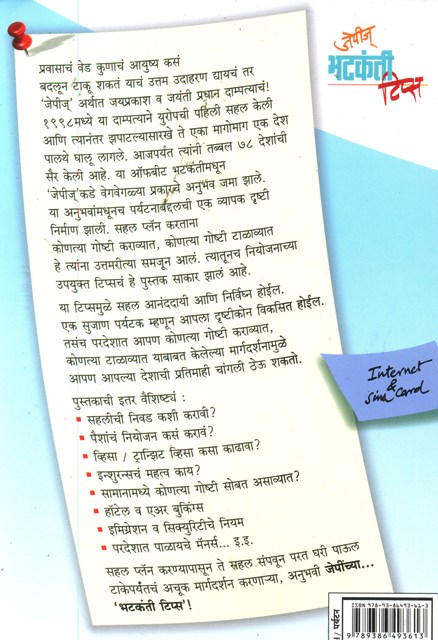 जेपीज्
भटकंती
टिप्स
प्रवासाचं वेड कुणाचं आयुष्य कसं
बदलून टाकू शकतं याचं उत्तम उदाहरण द्यायचं तर
'जेपीज्' अर्थात जयप्रकाश व जयंती प्रधान दाम्पत्याचं!
१९९८मध्ये या दाम्पत्याने युरोपची पहिली सहल केली
आणि त्यानंतर झपाटल्यासारखे ते एका मागोमाग एक देश
पालथे घालू लागले. आजपर्यंत त्यांनी तब्बल ७८ देशांची
सैर केली आहे. या ऑफबीट भटकंतीमधून
'जेपीज्'कडे वेगवेगळ्या प्रकारचे अनुभव जमा झाले.
या अनुभवांमधूनच पर्यटनाबद्दलची एक व्यापक दृष्टी
निर्माण झाली. सहल प्लॅन करताना
कोणत्या गोष्टी कराव्यात, कोणत्या गोष्टी टाळाव्यात
हे त्यांना उत्तमरीत्या समजून आलं. त्यातूनच नियोजनाच्या
उपयुक्त टिप्सचं हे पुस्तक साकार झालं आहे.
या टिप्समुळे सहल आनंददायी आणि निर्विघ्न होईल.
एक सुजाण पर्यटक म्हणून आपला दृष्टीकोन विकसित होईल.
तसंच परदेशात आपण कोणत्या गोष्टी कराव्यात,
कोणत्या टाळाव्यात याबाबत केलेल्या मार्गदर्शनामुळे
आपण आपल्या देशाची प्रतिमाही चांगली ठेऊ शकतो.
पुस्तकाची इतर वैशिष्ट्यं :
▪ सहलीची निवड कशी करावी?
▪ पैशांचं नियोजन कसं करावं?
▪ व्हिसा / ट्रान्झिट व्हिसा कसा काढावा?
▪ इन्शुरन्सचं महत्व काय?
▪ सामानामध्ये कोणत्या गोष्टी सोबत असाव्यात?
▪ हॉटेल व एअर बुकिंग्स
▪ इमिग्रेशन व सिक्युरिटीचे नियम
▪ परदेशात पाळायचे मॅनर्स... इ.इ.
सहल प्लॅन करण्यापासून ते सहल संपवून परत घरी पाऊल
टाकेपर्यंतचं अचूक मार्गदर्शन करणाऱ्या, अनुभवी जेपींच्या...
'भटकंती टिप्स'!
Internet
&
Sim Card
ISBN 978-93-86493-61-3
9 789386 493613
। पर्यटन